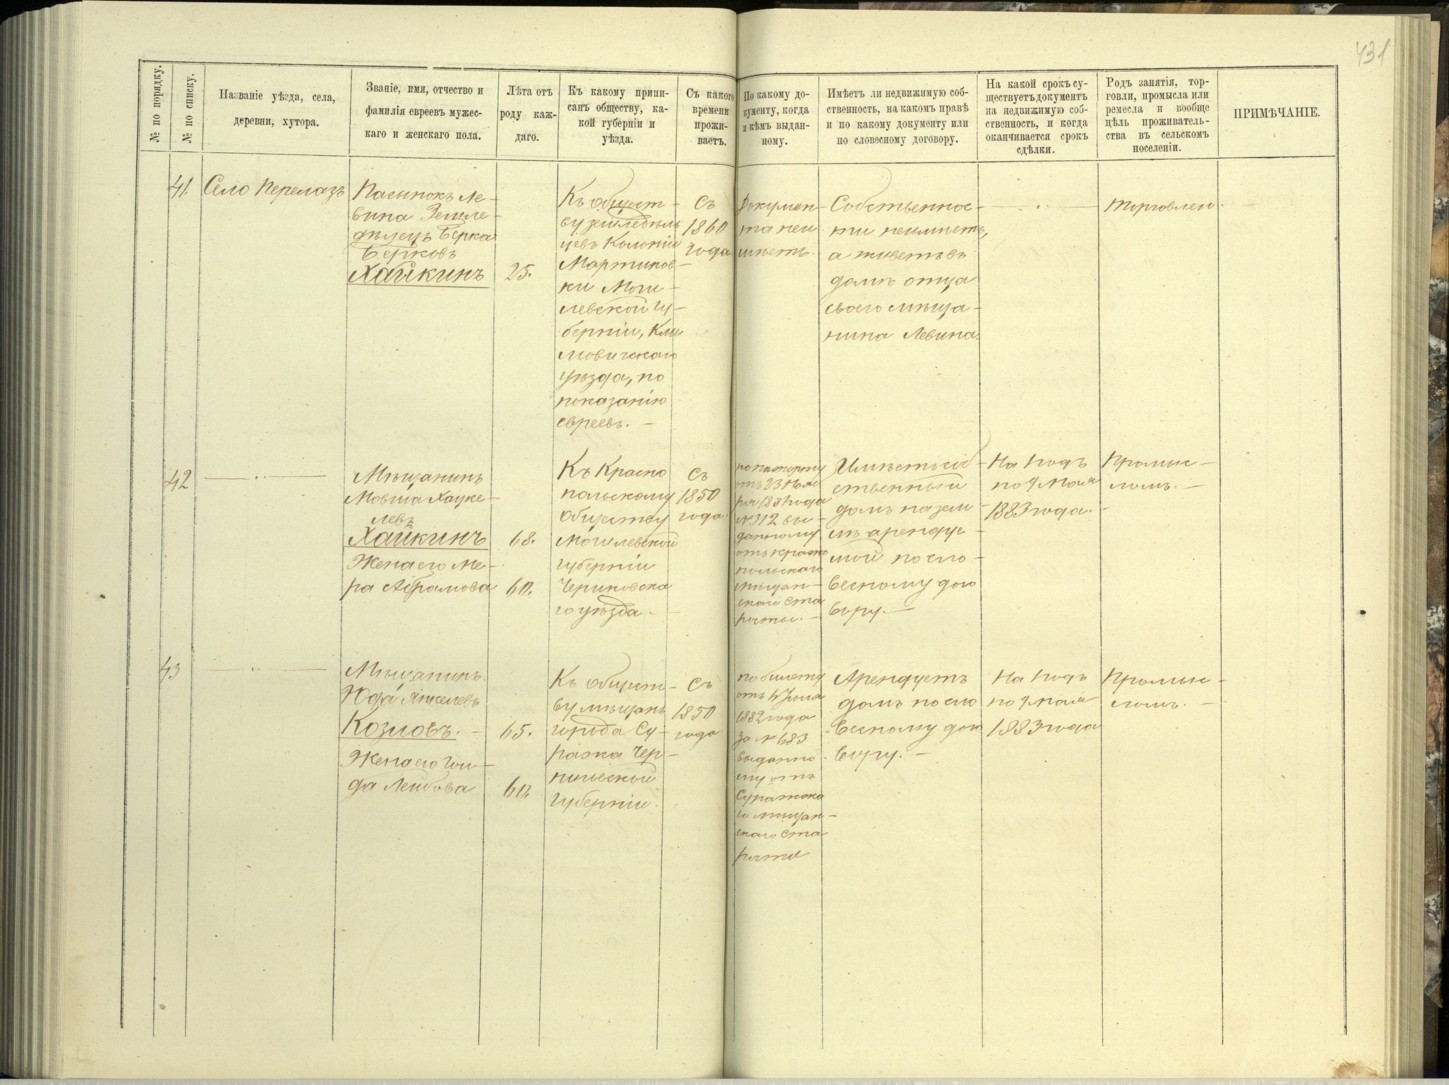 431
№ по порядку.
№ по списку.
Названіе уѣзда, села,
деревни, хутора.
Званіе, имя, отчество и
фамилія евреевъ мужес-
каго и женскаго пола.
Лѣта отъ
роду каж-
даго.
Къ какому припи-
санъ обществу, ка-
кой губерніи и
уѣзда.
Съ какого
времени
прожи-
ваетъ.
По какому до-
кументу, когда
и кѣмъ выдан-
ному.
Имѣетъ ли недвижимую соб-
ственность, на какомъ правѣ
и по какому документу или
по словесному договору.
На какой срокъ су-
ществуетъ документъ
на недвижимую соб-
ственность, и когда
оканчивается срокъ
сдѣлки.
Родъ занятія, тор-
говли, промысла или
ремесла и вообще
цѣль проживатель-
ства въ сельскомъ
поселеніи.
ПРИМѢЧАНІЕ.
41.
Село Перелазъ
Пасынокъ Ле-
вина Земле-
дѣлецъ Берка
Берковъ
Хайкинъ
25.
Къ общест-
ву земледѣль
цевъ Колоніи
Мартинов-
ки Моги-
левской гу-
берніи, Кли
мовичскаго
уѣзда, по
показанію
евреевъ. —
Съ
1860
года
Докумен-
та неи
мѣетъ.
Собственнос-
ти неимѣетъ,
а живетъ въ
домѣ отца
своего мѣща-
нина Левина.
Торговлею
42
Мѣщанинъ
Мовша Хацке-
левъ
Хайкинъ
68.
Жена его Ме-
ра Абрамова
60.
Къ Красно
польскому
обществу
Могилевской
губерніи
Чериковска
го уѣзда. —
Съ
1850
года
по паспорту
отъ 23 Нояб
ря 1881 года
№ 312 вы-
данному
отъ Красно
польскаго
мѣщан-
скаго ста
росты. —
Имѣетъ соб-
ственный
домъ на зем-
лѣ арендуе-
мой по сло-
весному дого
вору. —
На годъ
по 9 мая
1883 года.
Промыс-
ломъ. —
43
Мѣщанинъ
Юда Янкелевъ
Козловъ. —
65.
Жена его Гои-
да Лейбова
60.
Къ общест-
ву мѣщанъ
города Су-
ража Чер-
ниговской
губерніи.
Съ
1850
года
по билету
1882 года
за № 683
выданно-
му отъ
Суражска
го мѣщан-
скаго ста
росты
Арендуетъ
домъ по сло
весному дого
вору. —
На годъ
по 9 мая
1883 года
Промыс-
ломъ. —